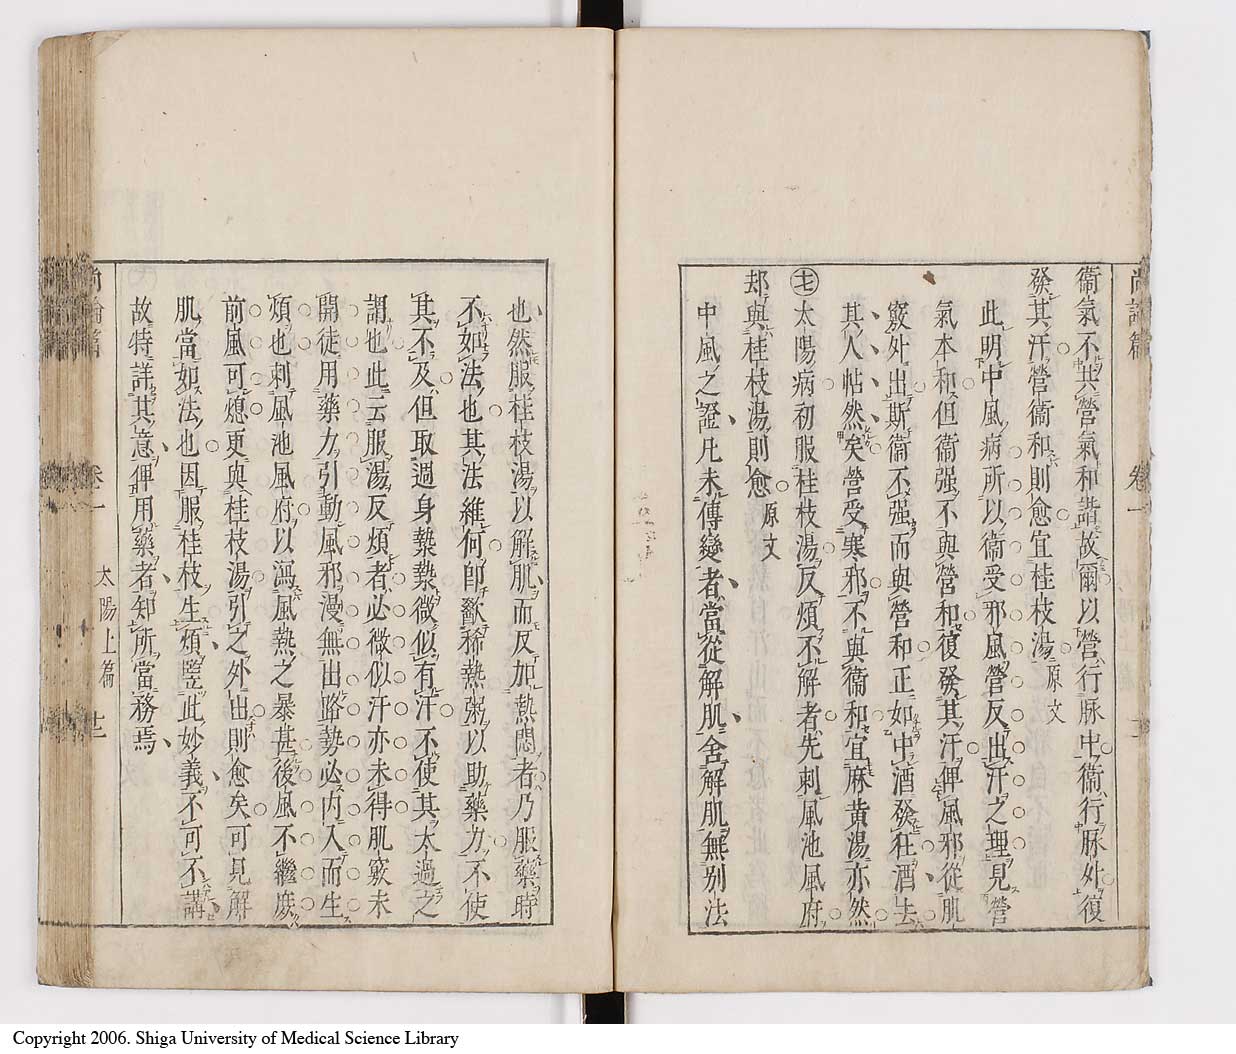 衞氣不共營氣和諧故爾以營行脉中衞行脉外復
發其汗營衞和則愈宜桂枝湯原文
此明中風病所以衞受邪風營反出汗之理見營
氣本和但衞强不與營和復發其汗俾風邪從肌
竅外出斯衞不强而與營和正如中酒發狂酒去
其人帖然矣營受寒邪不與衞和宜麻黄湯亦然
㐧太陽病初服桂枝湯反煩不解者先刺風池風府
却與桂枝湯則愈原文
中風之證凡未傳變者當從解肌舍解肌無别法
尚論篇 卷一
也然服桂枝湯以解肌而反加熱悶者乃服藥時
不如法也其法維何卽歠稀熱粥以助藥力不使
其不及但取遍身漐漐微似有汗不使其太過之
謂也此云服湯反煩者必微似汗亦未得肌竅未
開徒用藥力引動風邪漫無出路勢必内入而生
煩也刺風池風府以瀉風熱之暴甚後風不繼庶
前風可熄更與桂枝湯引之外出則愈矣可見解
肌當如法也因服桂枝生煩竪此妙義不可不講
故特詳其意俾用藥者知所當務焉
尚論篇 卷一 太陽上篇
Copyright 2006. Shiga University of Medical Science Library